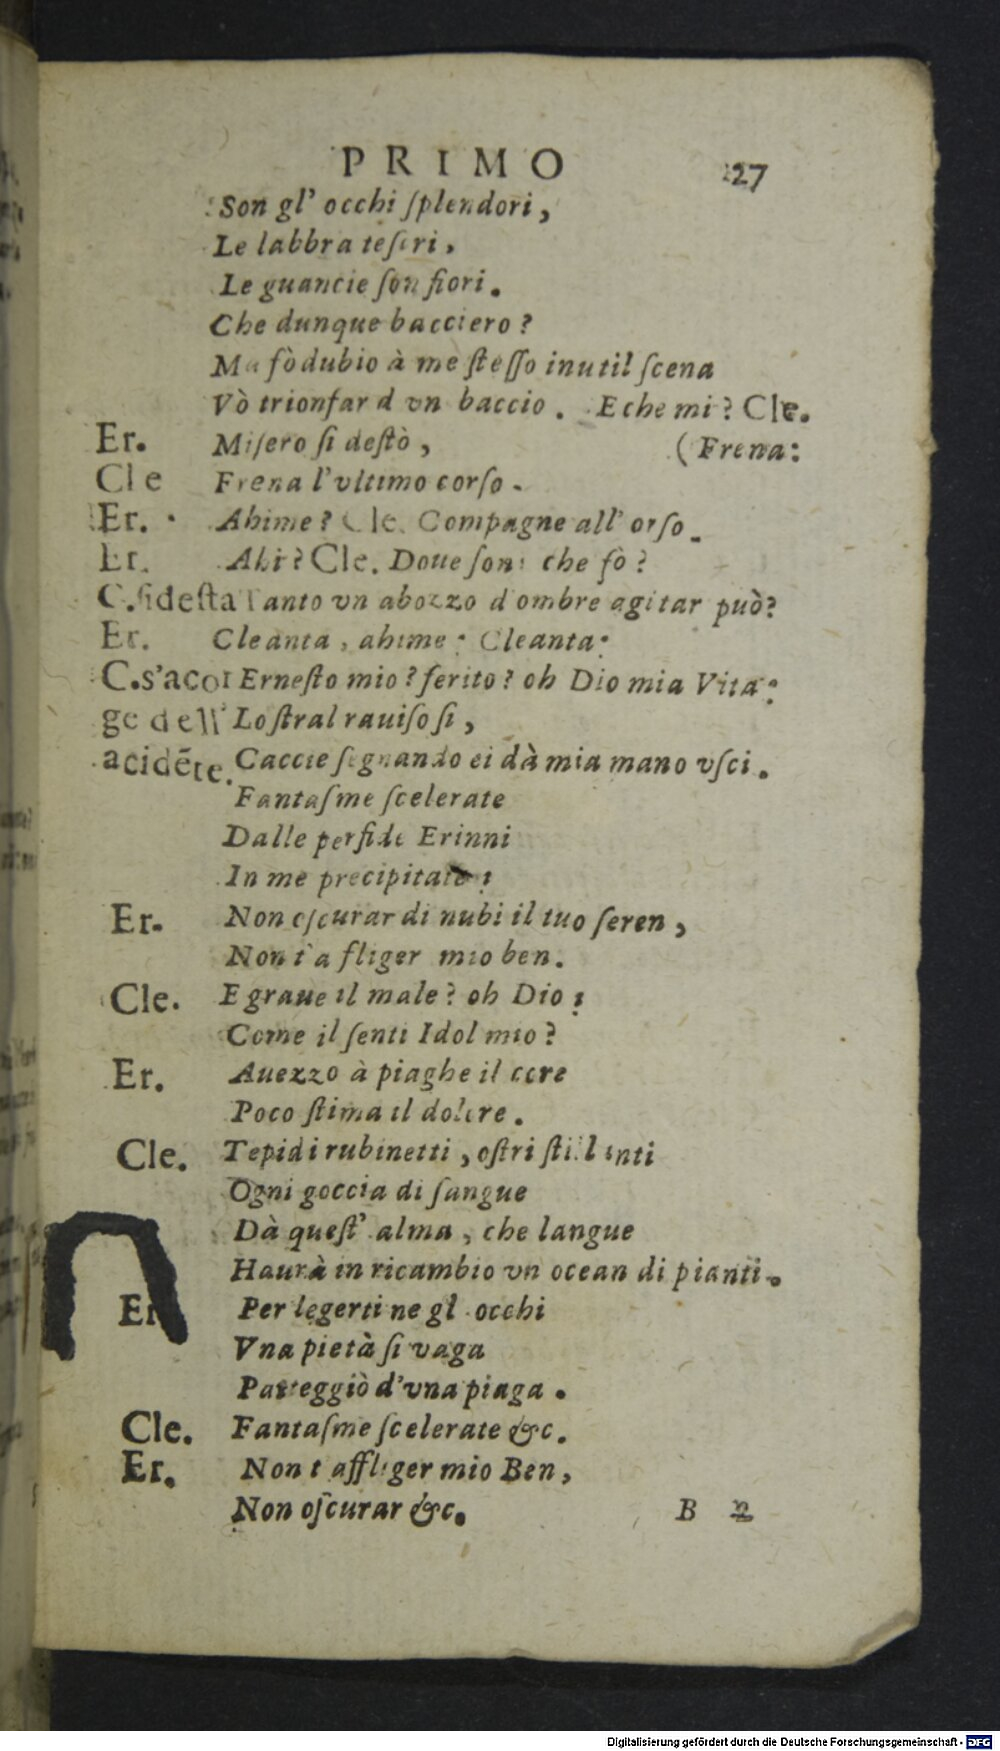 PRIMO 27
Son gl' occhi ſplendori,
Le labbra teſori,
Le guancie ſon fiori.
Che dunque bacciero?
Ma fò dubio à me ſteſſo inutil ſcena
Vò trionfar d vn baccio. E che mi? Cle.
Er. Miſero ſi deſtò, (Frena:
Cle Frena l'vltimo corſo.
Er. Ahime? Cle. Compagne all' orſo.
Er. Ahi? Cle. Doue ſon: che fò?
C.ſideſta Tanto vn abozzo d ombre agitar può?
Er. Cleanta, ahime: Cleanta:
C.s'acor Erneſto mio? ferito? oh Dio mia Vita:
ge dell' Lo ſtral rauiſo ſi,
acidẽte. Caccie ſegnando ei dà mia mano vſci.
Fantaſme ſcelerate
Dalle perfide Erinni
In me precipitate:
Er. Non oſcurar di nubi il tuo ſeren,
Non t'a fliger mio ben.
Cle. E graue il male? oh Dio:
Come il ſenti Idol mio?
Er. Auezzo à piaghe il core
Poco ſtima il dolore.
Cle. Tepidi rubinetti, oſtri ſtillanti
Ogni goccia di ſangue
Dà queſt' alma, che langue
Haurà in ricambio vn ocean di pianti.
Er Per legerti ne gl occhi
Vna pietà ſi vaga
Patteggiò d'vna piaga.
Cle. Fantaſme ſcelerate &c.
Er. Non t affliger mio Ben,
Non oſcurar &c. B 2
Digitalisierung gefördert durch die Deutsche Forschungsgemeinschaft - DFG